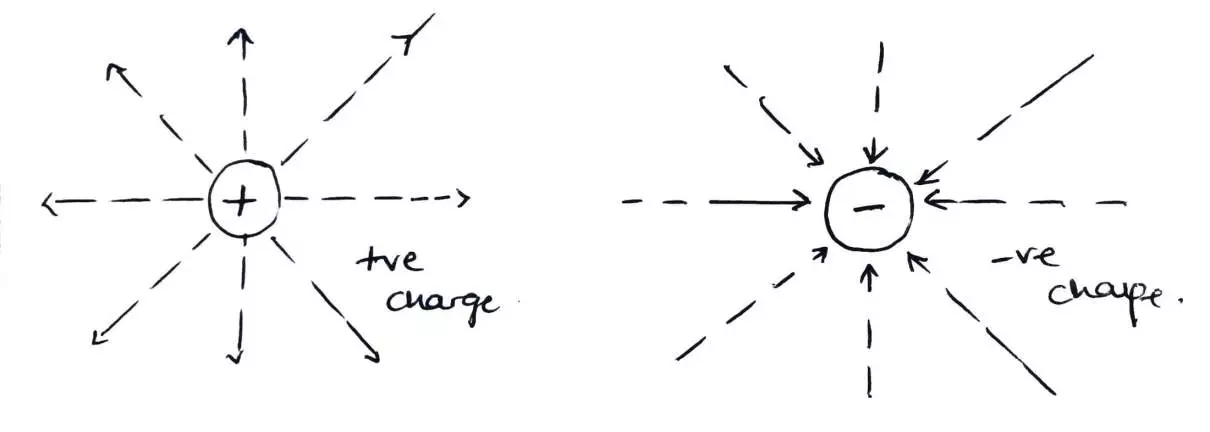 +
+ve
charge
-
-ve
charge.